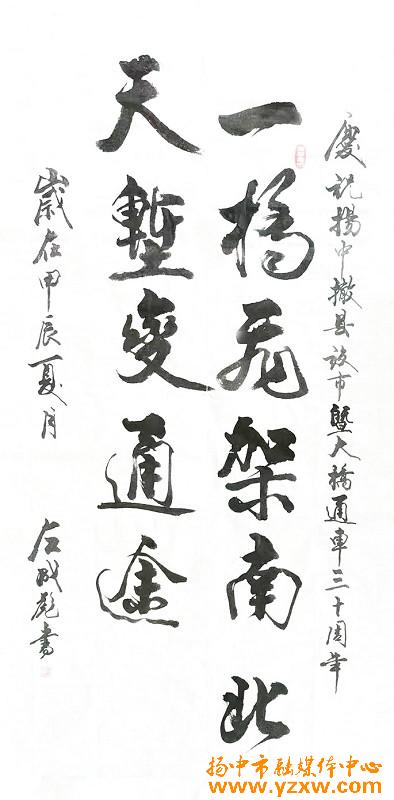 慶祝揚中撤县設市暨大橋通車三十周年
一橋飛架南北
天塹變通途
歲在甲辰夏月
扬中市融媒体中心
www.yzxw.com